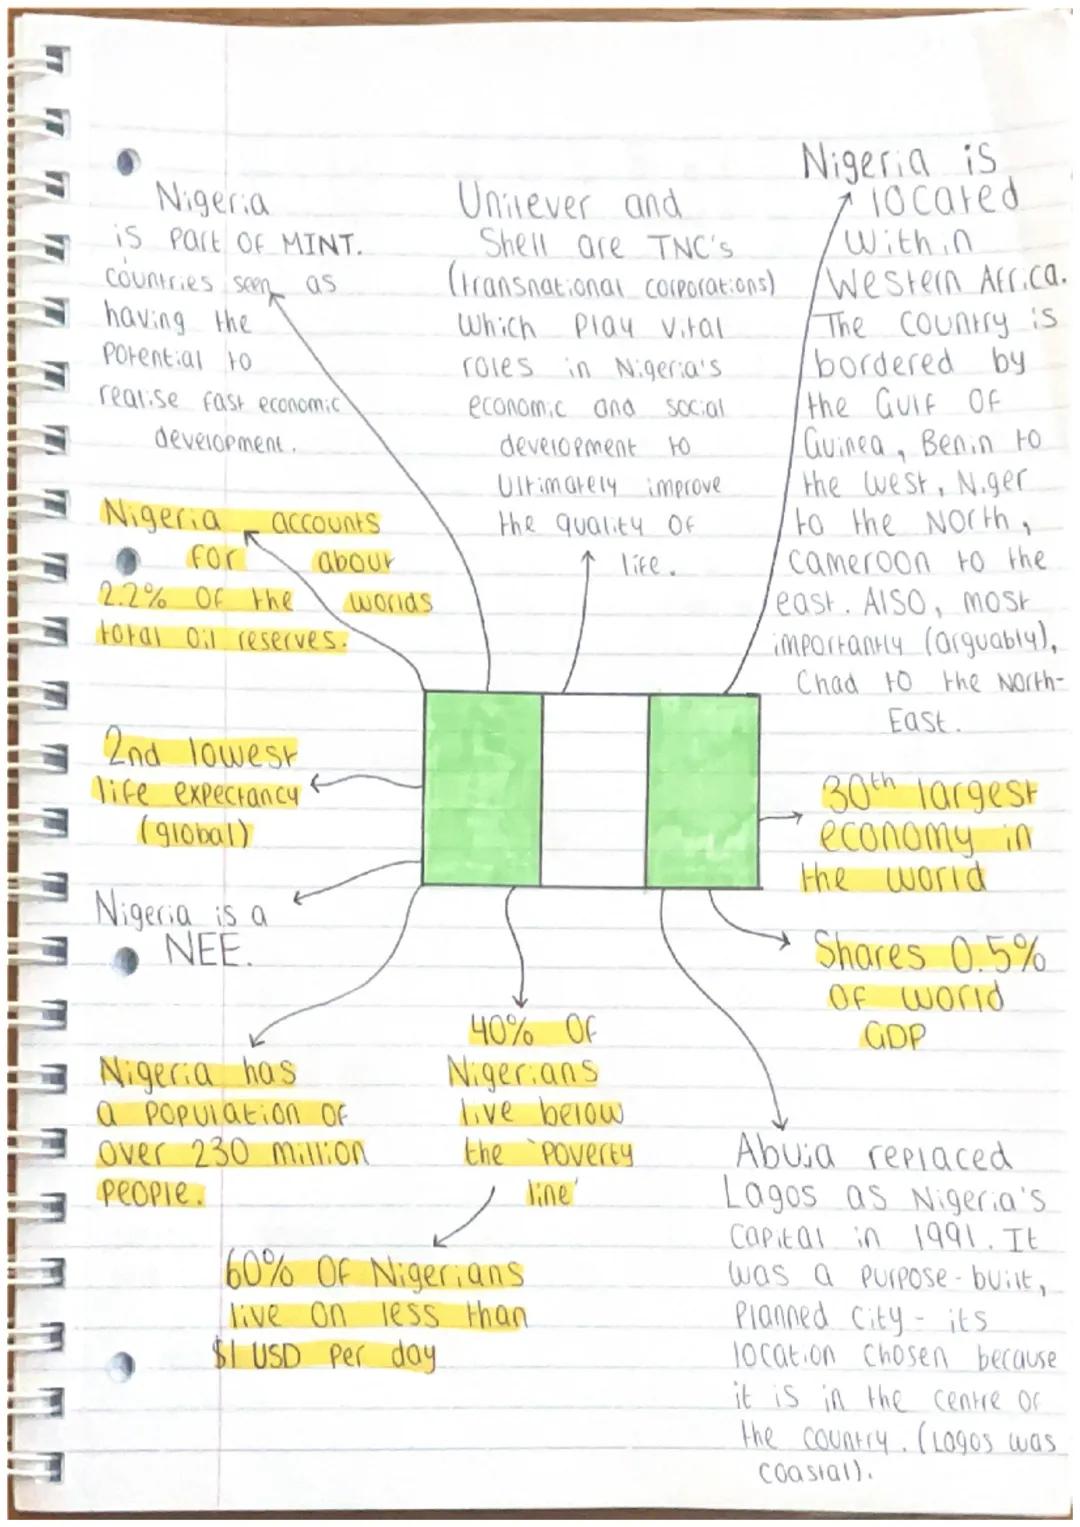 Nigeria
is part of MINT.
countries seen as
having the
potential to
realise fast economic
development.
Unilever and
Shell are TNC's
(transnational corporations)
which play vital
roles in Nigeria's
economic and social
development to
ultimately improve
the quality of
life.
Nigeria is
located
within
Western Africa.
The country is
bordered by
the Gulf of
Guinea, Benin to
the west, Niger
to the North,
Cameroon to the
east. Also, most
importantly (arguably),
Chad to the North-
East.
Nigeria accounts
for about
2.2% of the worlds
total oil reserves.
2nd lowest
life expectancy
(global)
Nigeria is a
NEE.
Nigeria has
a population of
over 230 million
people.
40% of
Nigerians
live below
the 'poverty
line'
60% of Nigerians
live on less than
$1 USD per day
30th largest
economy in
the world
Shares 0.5%
of world
GDP
Abuja replaced
Lagos as Nigeria's
capital in 1991. It
was a purpose-built,
planned city - its
location chosen because
it is in the centre of
the country. (Lagos was
coastal).